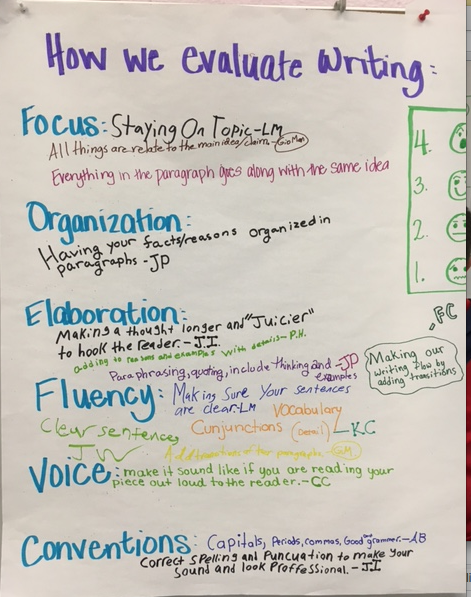 How we evaluate writing:
Focus: Staying On Topic-LM
All things are relate to the main idea/claim.-GioMan
Everything in the paragraph goes along with the same idea
4.
3.
2.
1.
Organization:
Having your facts/reasons organized in
paragraphs -JP
Elaboration:
Making a thought longer and "Juicier"
to hook the reader.-J.I.
adding to reasons and examples with details-P.H.
Paraphrasing, quoting, include thinking and -JP
examples
FC
Making our
writing flow by
adding transitions
Fluency: Making Sure Your sentences
are clear-LM
Vocabulary
Clear sentences
JW
Cunjunctions (Detail) -K.C
Add transitions after paragraphs -GM
Voice: make it sound like if you are reading your
piece out loud to the reader.-GC
Conventions: Capitals, Periods, commas, Good and grammer.-AB
Correct spelling and Puncuation to make your
sound and look Proffessional.-J.I